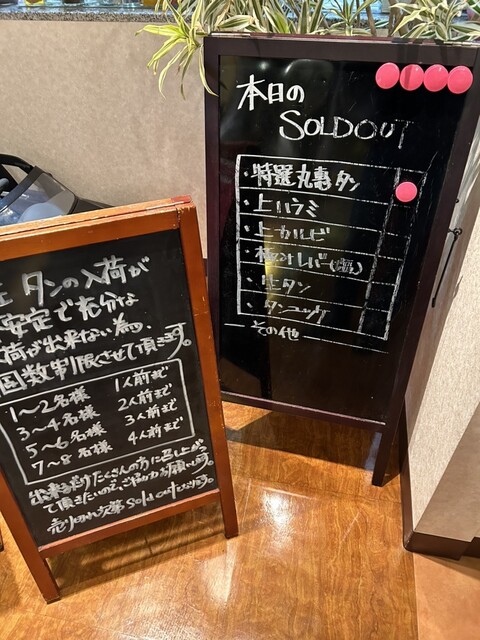 本日の
SOLDOUT
・特選丸真タン
・上ハラミ
・上カルビ
・極上レバー
・生タン
・タンユッケ
その他
生タンの入荷が
安定で充分な
荷が出来ない為、
個数制限させて頂きます。
1〜2名様 1人前まで
3〜4名様 2人前まで
5〜6名様 3人前まで
7〜8名様 4人前まで
出来る限りたくさんの方に召し上がっ
て頂きたいので、ご協力お願いします。
売り切れ次第 Sold outとなります。